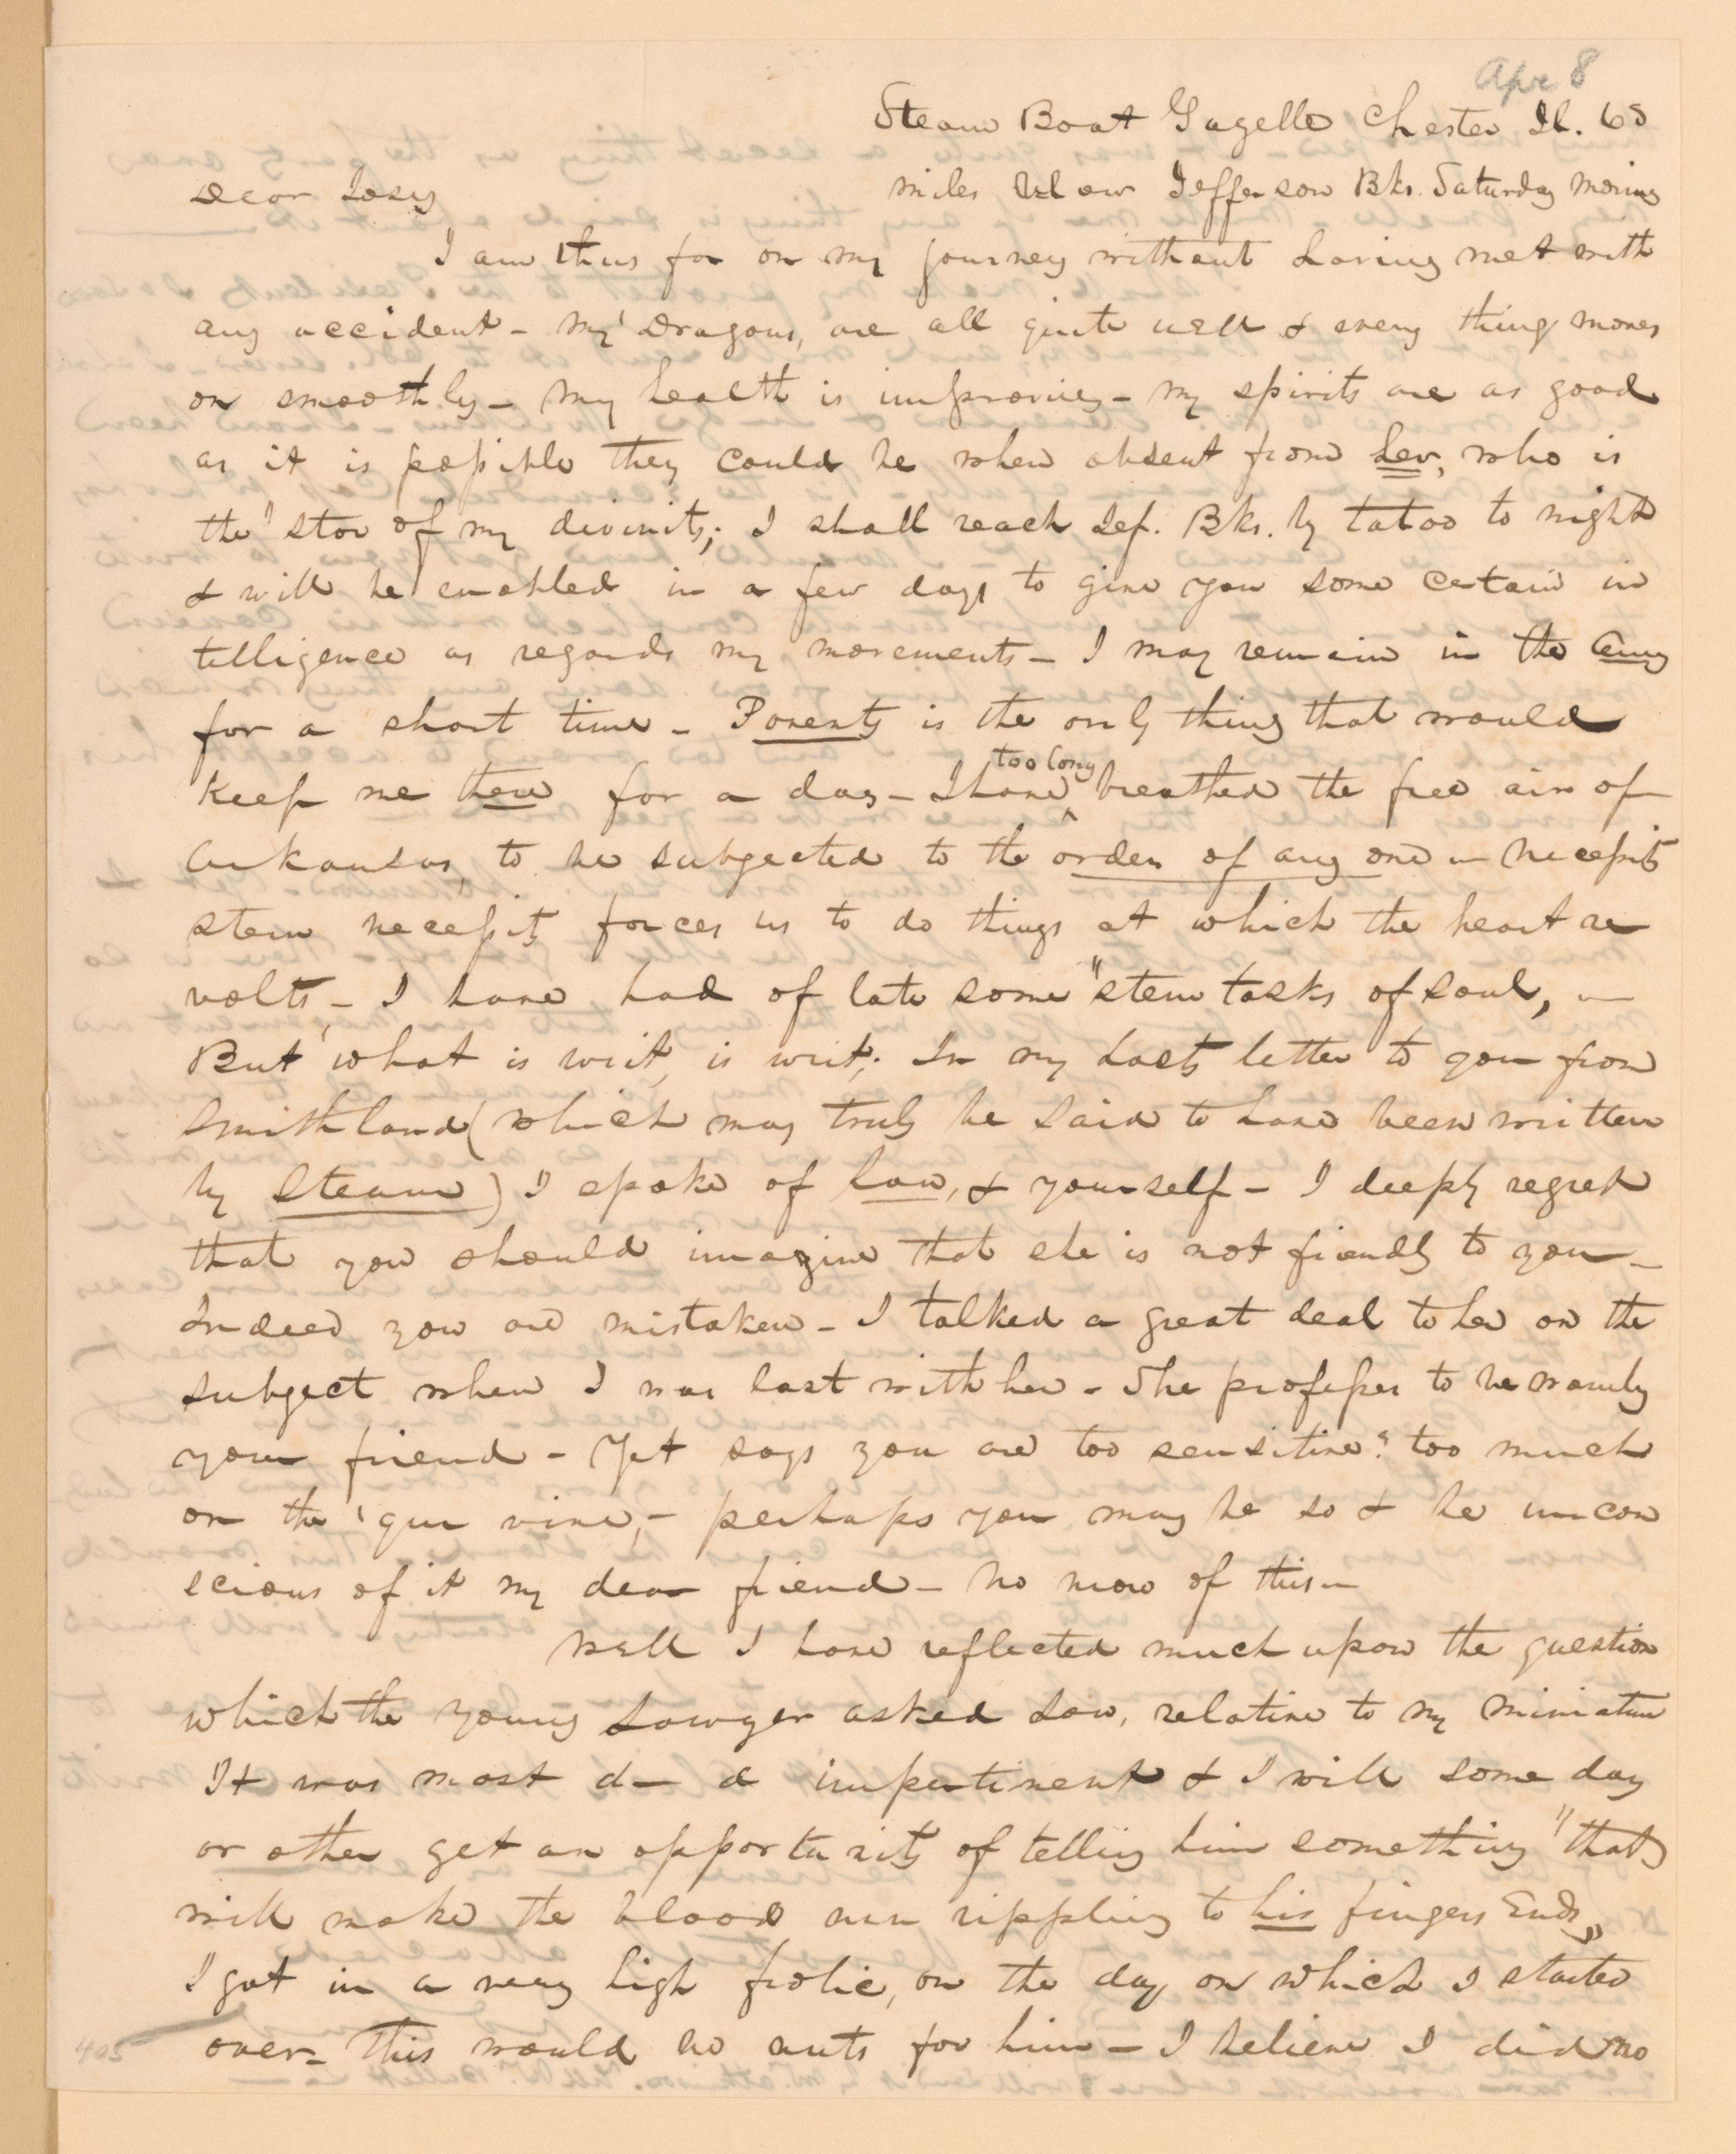 Apr 8
Steam Boat Gazelle Chester Il. 65
miles below Jefferson Bks. Saturday morning
Dear
I am thus far on my journey without having met with
any accident - My 'Dragons, are all quite well & every thing moves
on smoothly - My health is improving - my spirits are as good
as it is possible they could be when absent from her, who is
the 'star of my divinity; I shall reach Jef. Bks. by tatoo to night
& will be enabled in a few days to give you some certain in
telligence as regards my movements - I may remain in the army
for a short time - Poverty is the only thing that would
keep me there for a day - I have too long breathed the free air of
Arkansas, to be subgected to the order of any one - Necessity
stern necessity forces us to do things at which the heart re
volts - I have had of late some "stern tasks of soul, -
But 'what is writ, is writ; In my last letter to you from
Smithland (which may truly be said to have been written
by Steam) I spoke of Lou, & yourself - I deeply regret
that you should imagine that she is not friendly to you -
Indeed you are mistaken - I talked a great deal to her on the
subgect when I was last with her - She professes to be warmly
your friend - Yet says you are too sensitive: too much
on the 'qui vive, - perhaps you may be so & be uncon
scious of it my dear friend - No more of this -
Well I have reflected much upon the question
which the young Lawyer asked Lou, relative to my miniature
It was most d-d impertinent & I will some day
or other get an opportunity of telling him something "that
will make the blood run rippling to his fingers Ends"
I got in a very high frolic, on the day on which I started
over - This would be nuts for him - I believe I did no
405